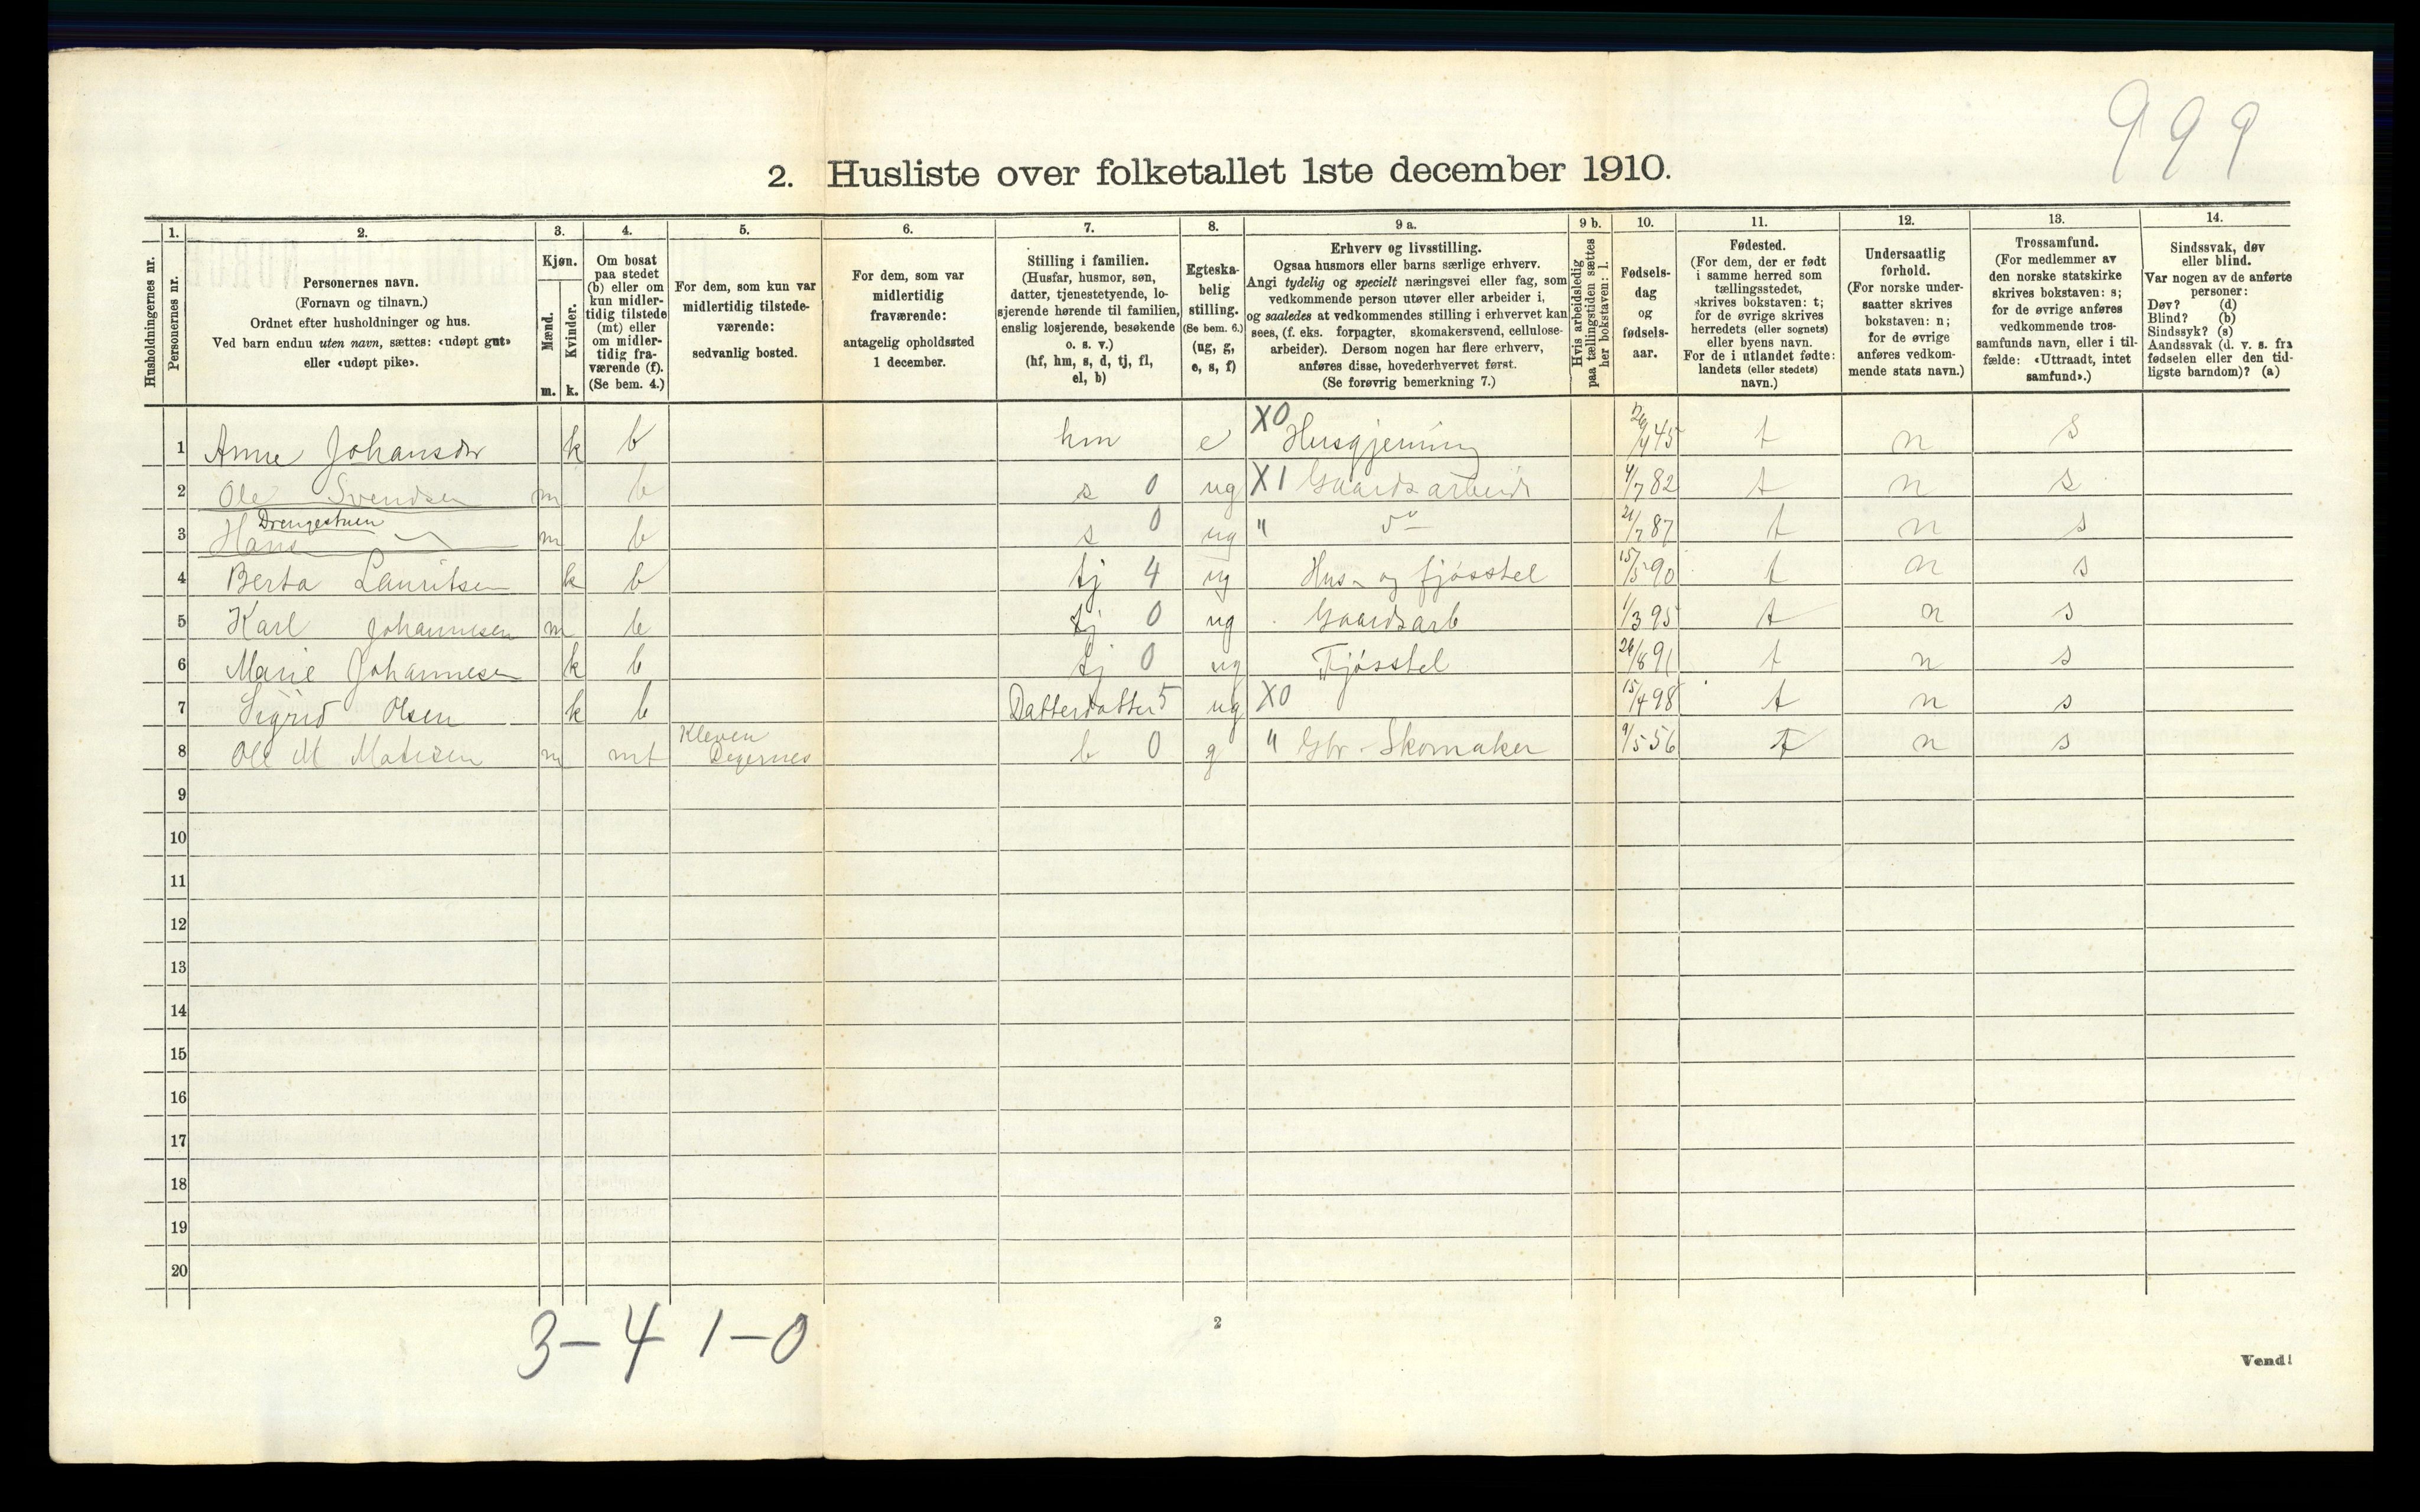 999
2. Husliste over folketallet 1ste december 1910.
Husholdningernes nr.
1.
Personernes nr.
2.
Personernes navn.
(Fornavn og tilnavn.)
Ordnet efter husholdninger og hus.
Ved barn endnu uten navn, sættes: «udøpt gut»
eller «udøpt pike».
3.
Kjøn.
Mænd.
m.
Kvinder.
k.
4.
Om bosat
paa stedet
(b) eller om
kun midler-
tidig tilstede
(mt) eller
om midler-
tidig fra-
værende (f).
(Se bem. 4.)
5.
For dem, som kun var
midlertidig tilstede-
værende:
sedvanlig bosted.
6.
For dem, som var
midlertidig
fraværende:
antagelig opholdssted
1 december.
7.
Stilling i familien.
(Husfar, husmor, søn,
datter, tjenestetyende, lo-
sjerende hørende til familien,
enslig losjerende, besøkende
o. s. v.)
(hf, hm, s, d, tj, fl,
el, b)
8.
Egteska-
belig
stilling.
(Se bem. 6.)
(ug, g,
e, s, f)
9 a.
Erhverv og livsstilling.
Ogsaa husmors eller barns særlige erhverv.
Angi tydelig og specielt næringsvei eller fag, som
vedkommende person utøver eller arbeider i,
og saaledes at vedkommendes stilling i erhvervet kan
sees, (f. eks. forpagter, skomakersvend, cellulose-
arbeider). Dersom nogen har flere erhverv,
anføres disse, hovederhvervet først.
(Se forøvrig bemerkning 7.)
9 b.
Hvis arbeidsledig
paa tællingstiden sættes
her bokstaven: l.
10.
Fødsels-
dag
og
fødsels-
aar.
11.
Fødested.
(For dem, der er født
i samme herred som
tællingsstedet,
skrives bokstaven: t;
for de øvrige skrives
herredets (eller sognets)
eller byens navn.
For de i utlandet fødte:
landets (eller stedets)
navn.)
12.
Undersaatlig
forhold.
(For norske under-
saatter skrives
bokstaven: n;
for de øvrige
anføres vedkom-
mende stats navn.)
13.
Trossamfund.
(For medlemmer av
den norske statskirke
skrives bokstaven: s;
for de øvrige anføres
vedkommende tros-
samfunds navn, eller i til-
fælde: «Uttraadt, intet
samfund».)
14.
Sindssvak, døv
eller blind.
Var nogen av de anførte
personer:
Døv? (d)
Blind? (b)
Sindssyk? (s)
Aandssvak (d. v. s. fra
fødselen eller den tid-
ligste barndom)? (a)
1 Anne Johansdr k b hm e X0 Husgjerning 45 t n s
2 Ole Svendsen m b s 0 ug X1 Gaardsarbeide 4/7 82 t n s
Drengestuen
3 Hans m b s 0 ug " do 21/7 87 t n s
4 Berta Lauritsen k b tj 4 ug Hus- og fjøsstel 15/5 90 t n s
5 Karl Johannesen m b tj 0 ug Gaardsarb 1/3 95 t n s
6 Marie Johannesen k b tj 0 ug Fjøsstel 26/8 91 t n s
7 Sigrid Olsen k b Datterdatter 5 ug X0 15/4 98 t n s
8 Ole M Madsen m mt Kleven Degernes b 0 g " Gbr - Skomaker 9/5 56 t n s
9
10
11
12
13
14
15
16
17
18
19
20
3-4 1-0
2
Vend!